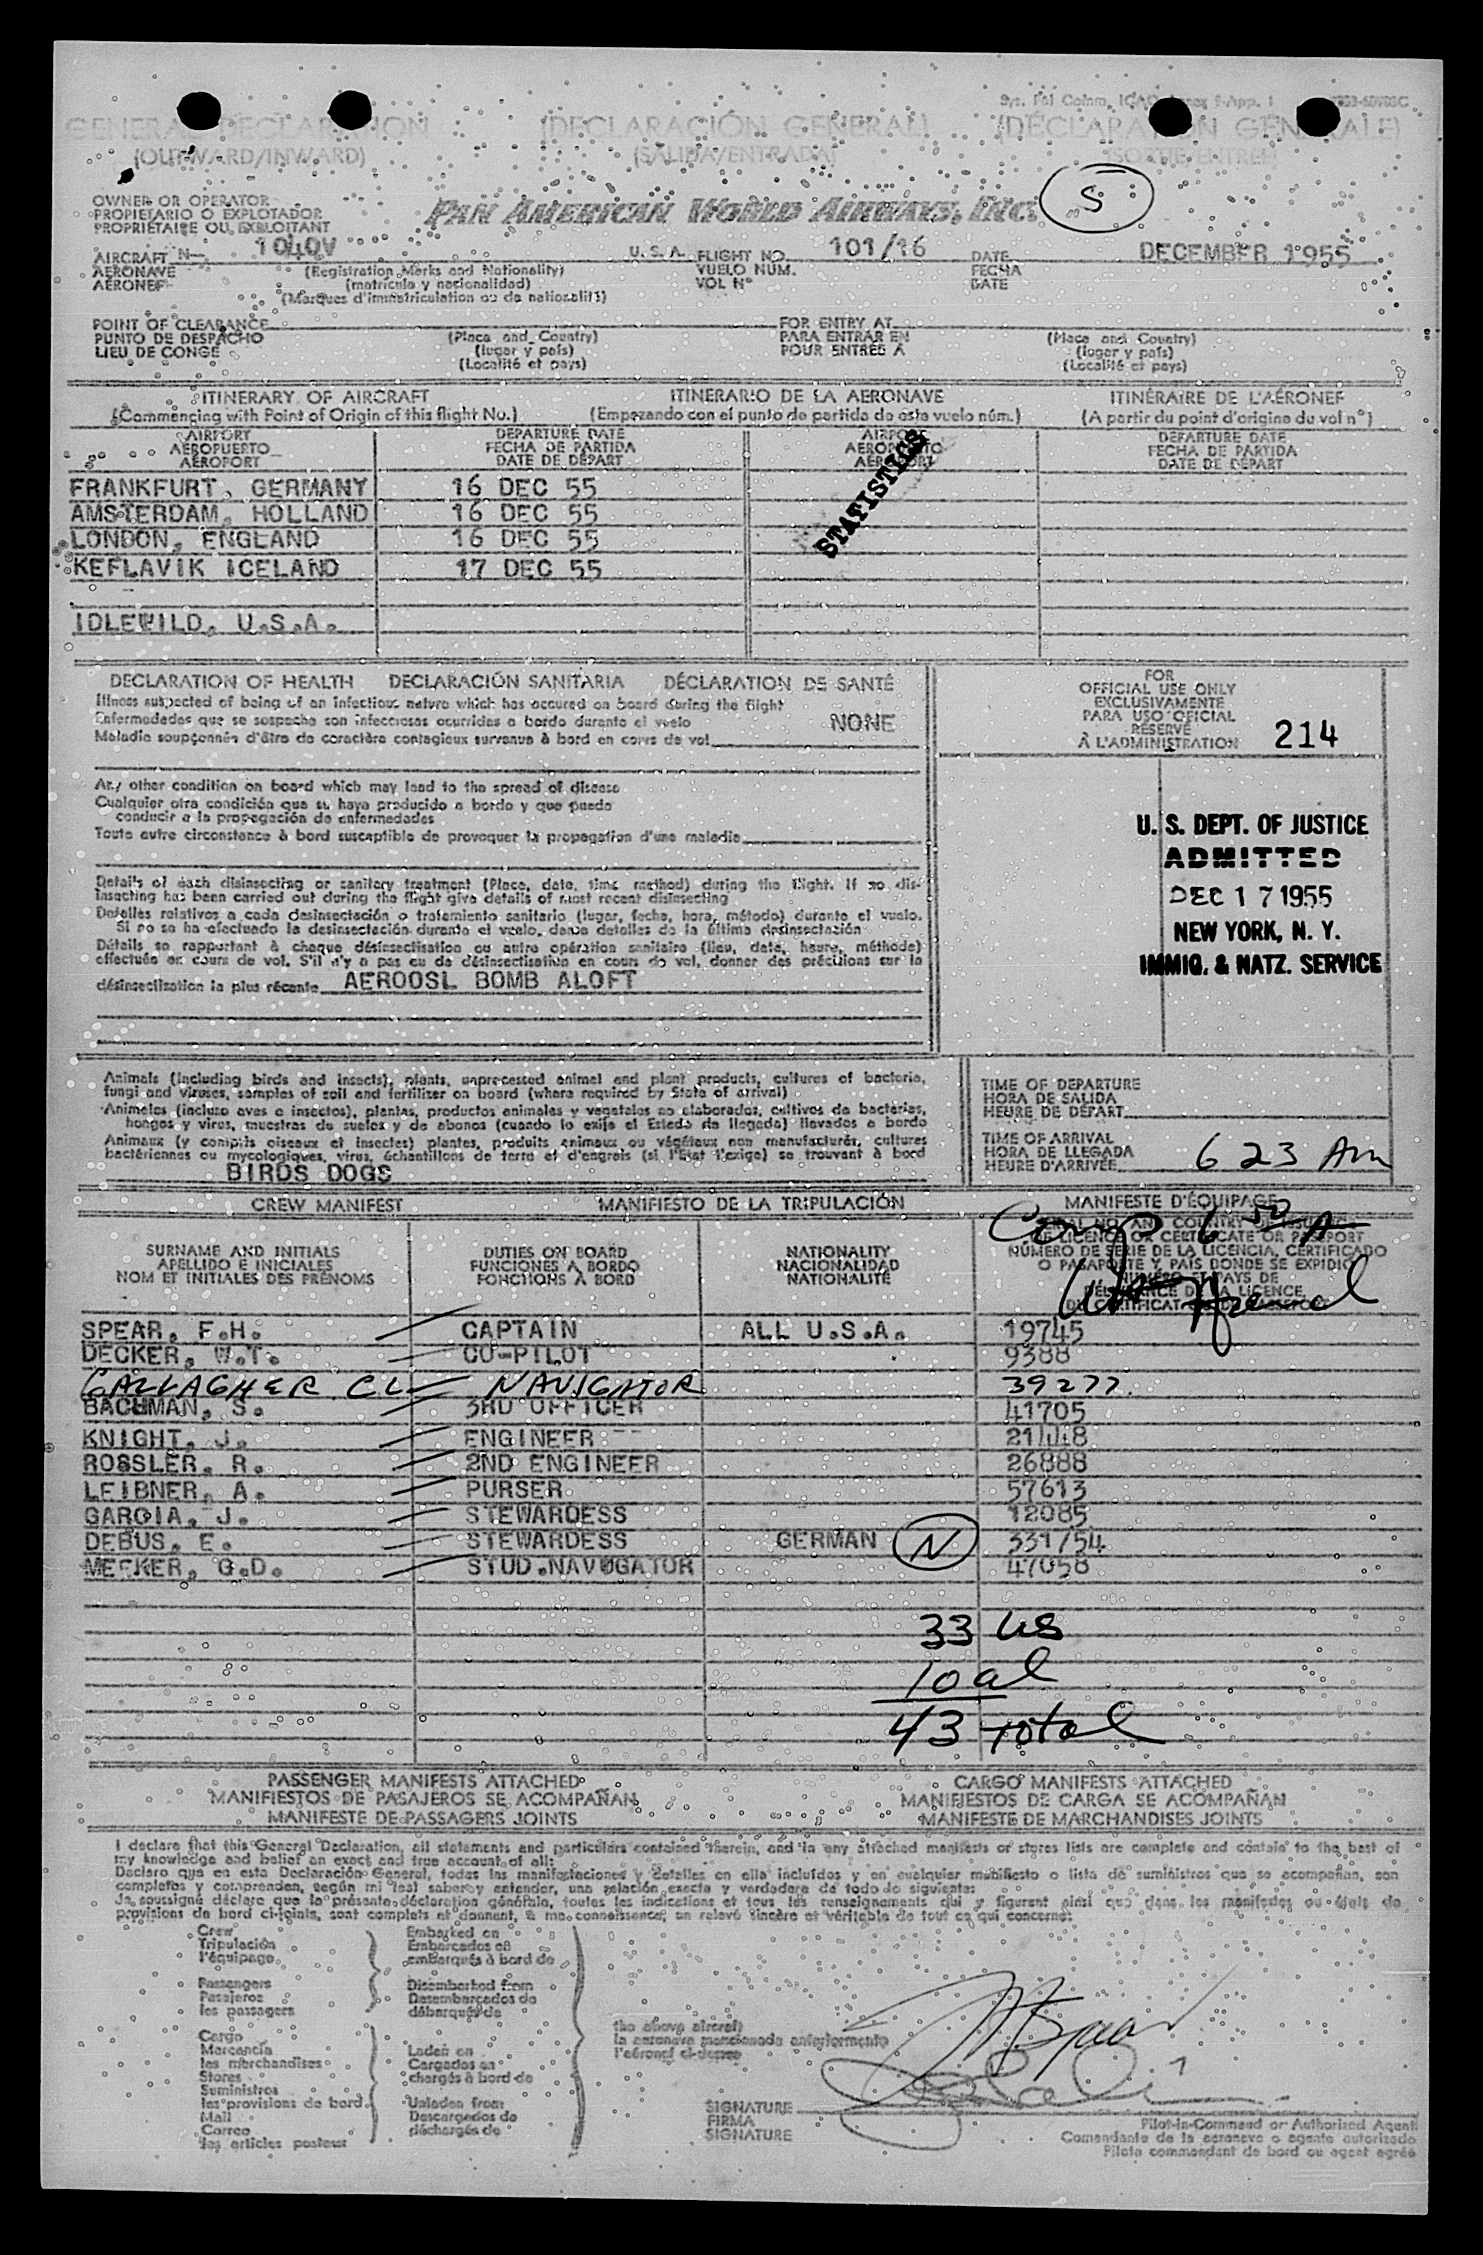 GENERAL DECLARATION (DECLARACIÓN GENERAL) (DÉCLARATION GÉNÉRALE)
(OUTWARD/INWARD) (SALIDA/ENTRADA) (SORTIE/ENTRÉE)
S
OWNER OR OPERATOR
PROPIETARIO O EXPLOTADOR
PROPRIÉTAIRE OU EXPLOITANT
PAN AMERICAN WORLD AIRWAYS, INC.
AIRCRAFT N- 1040V U.S.A. FLIGHT NO. 101/16 DATE DECEMBER 1955
AERONAVE (Registration Marks and Nationality) VUELO NÚM. FECHA
AÉRONEF (matrícula y nacionalidad) VOL N° DATE
(Marques d'immatriculation ou de nationalité)
POINT OF CLEARANCE FOR ENTRY AT
PUNTO DE DESPACHO (Place and Country) PARA ENTRAR EN (Place and Country)
LIEU DE CONGÉ (lugar y país) POUR ENTRÉE À (lugar y país)
(Localité et pays) (Localité et pays)
ITINERARY OF AIRCRAFT ITINERARIO DE LA AERONAVE ITINÉRAIRE DE L'AÉRONEF
(Commencing with Point of Origin of this flight No.) (Empezando con el punto de partida de este vuelo núm.) (A partir du point d'origine du vol n°)
AIRPORT DEPARTURE DATE AIRPORT DEPARTURE DATE
AEROPUERTO FECHA DE PARTIDA AEROPUERTO FECHA DE PARTIDA
AÉROPORT DATE DE DÉPART AÉROPORT DATE DE DÉPART
STATISTICS
FRANKFURT, GERMANY 16 DEC 55
AMSTERDAM, HOLLAND 16 DEC 55
LONDON, ENGLAND 16 DEC 55
KEFLAVIK ICELAND 17 DEC 55
IDLEWILD, U.S.A.
DECLARATION OF HEALTH DECLARACIÓN SANITARIA DÉCLARATION DE SANTÉ
Illness suspected of being of an infectious nature which has occured on board during the flight
Enfermedades que se sospecha son infecciosas ocurridas a bordo durante el vuelo NONE
Maladie soupçonnée d'être de caractère contagieux survenue à bord en cours de vol
Any other condition on board which may lead to the spread of disease
Cualquier otra condición que se haya producido a bordo y que pueda
conducir a la propagación de enfermedades
Toute autre circonstance à bord susceptible de provoquer la propagation d'une maladie
Details of each disinsecting or sanitary treatment (Place, date, time method) during the flight. If no dis-
insecting has been carried out during the flight give details of most recent disinsecting
Detalles relativos a cada desinsectación o tratamiento sanitario (lugar, fecha, hora, método) durante el vuelo.
Si no se ha efectuado la desinsectación durante el vuelo, dense detalles de la última desinsectación
Détails se rapportant à chaque désinsectisation ou autre opération sanitaire (lieu, date, heure, méthode)
effectuée en cours de vol. S'il n'y a pas eu de désinsectisation en cours de vol, donner des précisions sur la
désinsectisation la plus récente AEROOSL BOMB ALOFT
FOR
OFFICIAL USE ONLY
EXCLUSIVAMENTE
PARA USO OFICIAL
RÉSERVÉ
À L'ADMINISTRATION 214
U. S. DEPT. OF JUSTICE
ADMITTED
DEC 17 1955
NEW YORK, N. Y.
IMMIG. & NATZ. SERVICE
Animals (including birds and insects), plants, unprocessed animal and plant products, cultures of bacteria,
fungi and viruses, samples of soil and fertilizer on board (where required by State of arrival)
Animales (incluso aves e insectos), plantas, productos animales y vegetales no elaborados, cultivos de bacterias,
hongos y virus, muestras de suelos y de abonos (cuando lo exija el Estado de llegada) llevados a bordo
Animaux (y compris oiseaux et insectes) plantes, produits animaux ou végétaux non manufacturés, cultures
bactériennes ou mycologiques, virus, échantillons de terre et d'engrais (si l'État l'exige) se trouvant à bord
BIRDS DOGS
TIME OF DEPARTURE
HORA DE SALIDA
HEURE DE DÉPART
TIME OF ARRIVAL
HORA DE LLEGADA
HEURE D'ARRIVÉE 6 23 Am
CREW MANIFEST MANIFIESTO DE LA TRIPULACIÓN MANIFESTE D'ÉQUIPAGE
Comp 6 50 A
SURNAME AND INITIALS DUTIES ON BOARD NATIONALITY
APELLIDO E INICIALES FUNCIONES A BORDO NACIONALIDAD
NOM ET INITIALES DES PRÉNOMS FONCTIONS À BORD NATIONALITÉ
NÚMERO DE SERIE DE LA LICENCIA, CERTIFICADO
O PASAPORTE Y PAÍS DONDE SE EXPIDIÓ
SPEAR, F.H. CAPTAIN ALL U.S.A. 19745
DECKER, W.T. CO-PILOT 9388
GALLAGHER CL NAVIGATOR 39277
BACHMAN, S. 3RD OFFICER 41705
KNIGHT, J. ENGINEER 21448
ROSSLER, R. 2ND ENGINEER 26888
LEIBNER, A. PURSER 57613
GARCIA, J. STEWARDESS 12085
DEBUS, E. STEWARDESS GERMAN N 331754
MEEKER, G.D. STUD.NAVUGATOR 47058
33 US
10 al
43 total
PASSENGER MANIFESTS ATTACHED CARGO MANIFESTS ATTACHED
MANIFIESTOS DE PASAJEROS SE ACOMPAÑAN MANIFIESTOS DE CARGA SE ACOMPAÑAN
MANIFESTE DE PASSAGERS JOINTS MANIFESTE DE MARCHANDISES JOINTS
I declare that this General Declaration, all statements and particulars contained therein, and in any attached manifests or stores lists are complete and contain to the best of
my knowledge and belief an exact and true account of all:
Declaro que en esta Declaración General, todas las manifestaciones y detalles en ella incluídos y en cualquier manifiesto o lista de suministros que se acompañan, son
completos y comprenden, según mi leal saber y entender, una relación exacta y verdadera de todo lo siguiente:
Je soussigné déclare que la présente déclaration générale, toutes les indications et tous les renseignements qui y figurent ainsi que dans les manifestes ou états de
provisions de bord ci-joints, sont complets et donnent, à ma connaissance, un relevé sincère et véritable de tout ce qui concerne:
Crew Embarked on
Tripulación Embarcados en
l'équipage embarqués à bord de
Passengers Disembarked from
Pasajeros Desembarcados de
les passagers débarqués de
Cargo
Mercancía Laden on
les marchandises Cargados en
Stores chargés à bord de
Suministros
les provisions de bord Unladen from
Mail Descargados de
Correo déchargés de
les articles postaux
the above aircraft
la aeronave mencionada anteriormente
l'aéronef ci-dessus
SIGNATURE
FIRMA
SIGNATURE
Pilot-in-Command or Authorized Agent
Comandante de la aeronave o agente autorizado
Pilote commandant de bord ou agent agréé